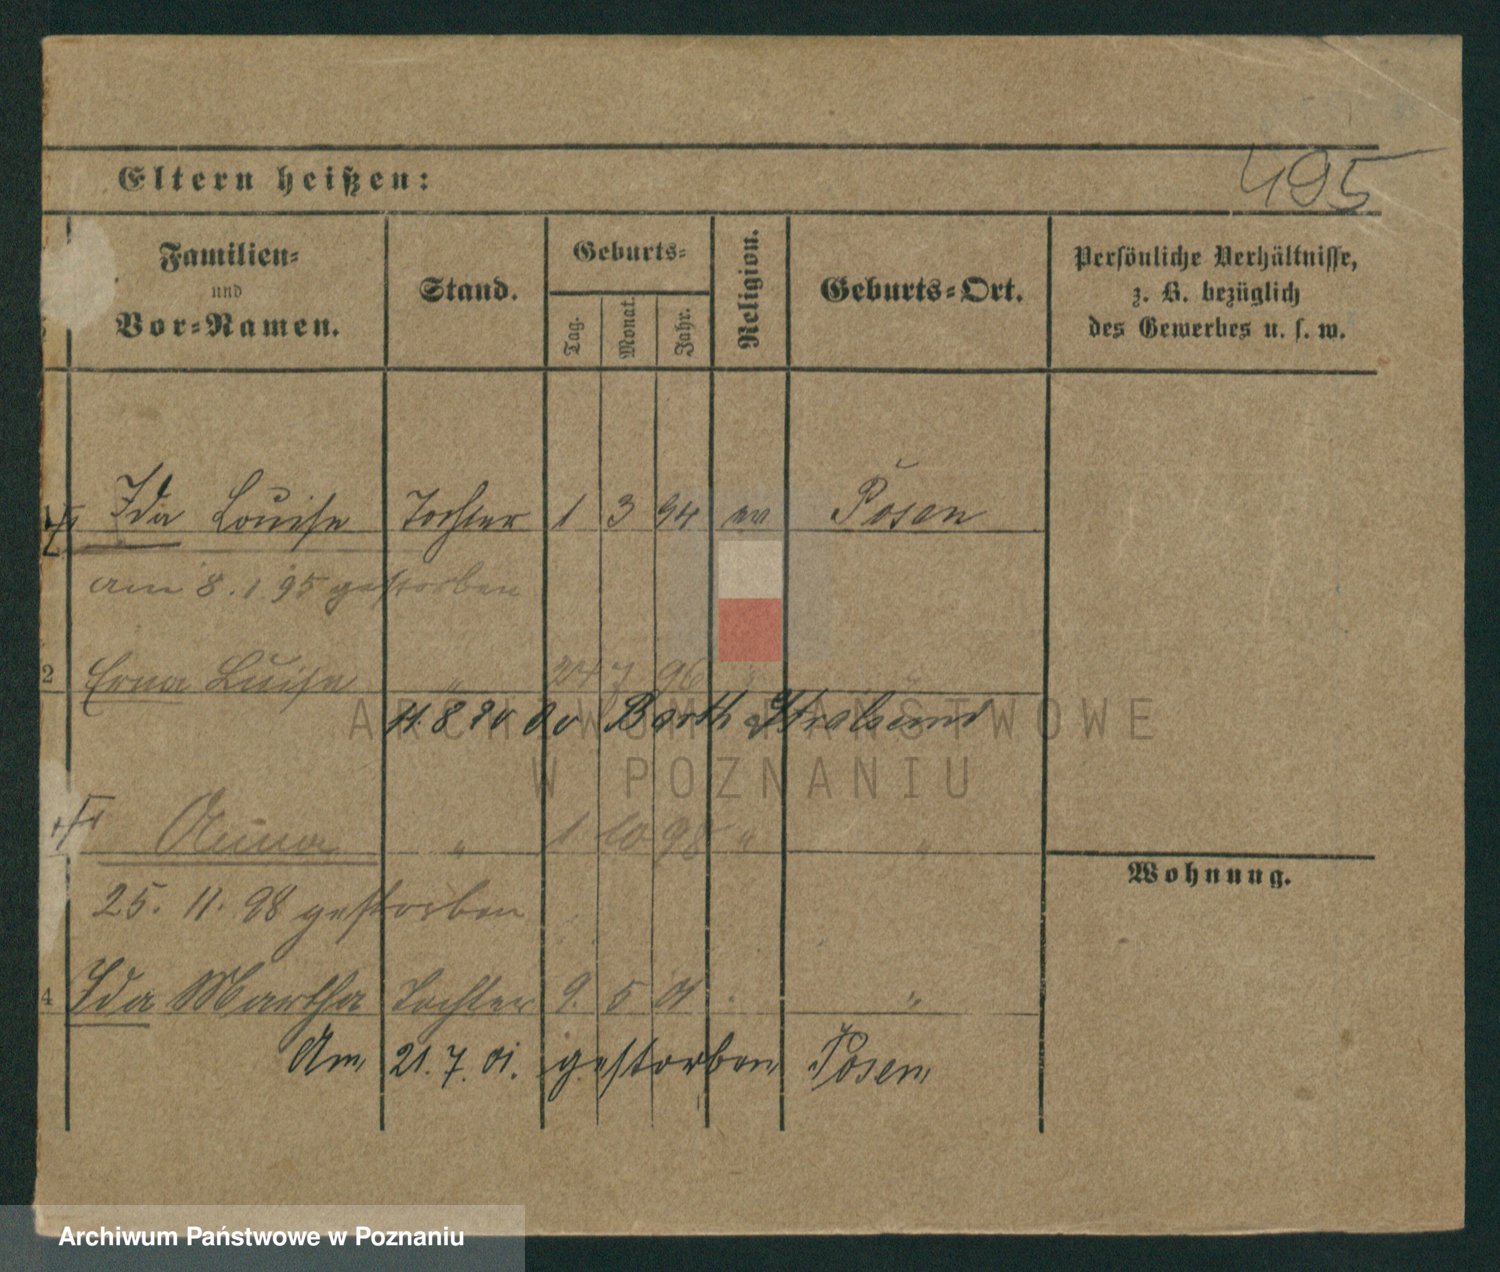 495
Eltern heißen:
Familien-
und
Vor-Namen.
Stand.
Geburts-
Tag.
Monat.
Jahr.
Religion.
Geburts-Ort.
Persönliche Verhältnisse,
z. B. bezüglich
des Gewerbes u. s. w.
Ida Louise Tochter 1 3 94 ev Posen
am 8. 1. 95 gestorben
2 Erna Luise " 24 7 96 " "
11. 8. 20 Barth Stralsund
Anna " 1 10 98 " "
Wohnung.
25. 11. 98 gestorben
4 Ida Martha Tochter 9. 5 01 "
Am 21. 7. 01. gestorben Posen
ARCHIWUM PAŃSTWOWE
W POZNANIU
Archiwum Państwowe w Poznaniu